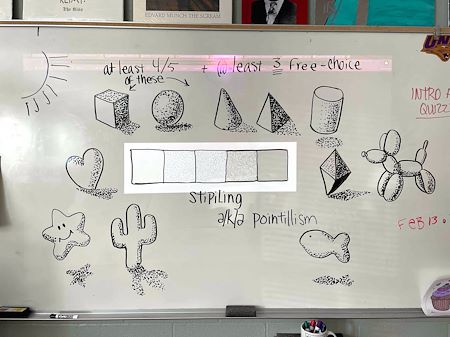 EDVARD MUNCH THE SCREAM
at least 4/5 + @ least 3 free-choice
of these
INTRO
QUIZ
Stipiling
a/k/a pointillism
FEB 13.